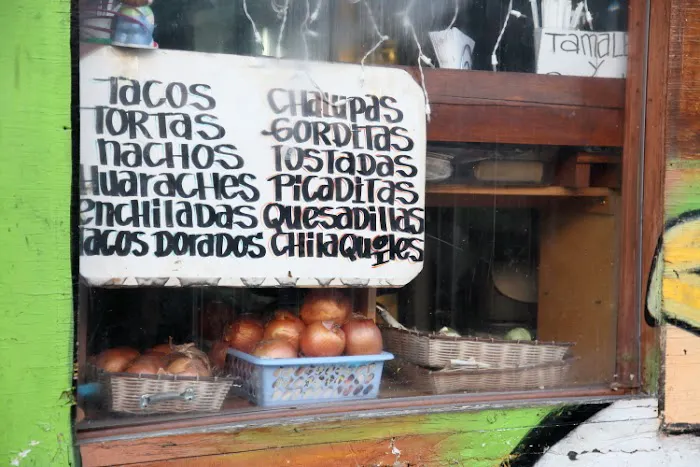 TACOS
TORTAS
NACHOS
HUARACHES
ENCHILADAS
TACOS DORADOS
CHALUPAS
GORDITAS
TOSTADAS
PICADITAS
QUESADILLAS
CHILAQUILES
TAMALE
Y